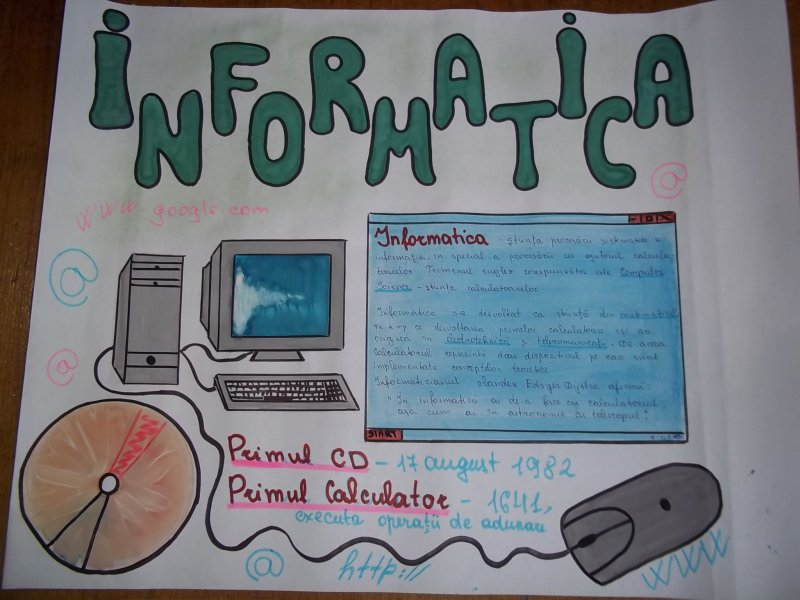 INFORMATICA
@
www.google.com
@
@
- IOIX
Informatica - știința procesării sistematice a
informației, în special a procesării cu ajutorul calcula-
toarelor. Termenul englez corespunzător este Computer
Science - știința calculatoarelor
Informatica s-a dezvoltat ca știință din matematică
în timp ce dezvoltarea primelor calculatoare își are
originea în electrotehnică și telecomunicații. De aceea
Calculatorul reprezintă doar dispozitivul pe care sunt
implementate conceptele teoretice.
Informaticianul olandez Edsger Dijstra afirma:
"In informatică ai de a face cu calculatorul,
așa cum ai în astronomie cu telescopul".
START
Primul CD - 17 august 1982
Primul Calculator - 1641,
executa operații de adunare
@
http://
WWW